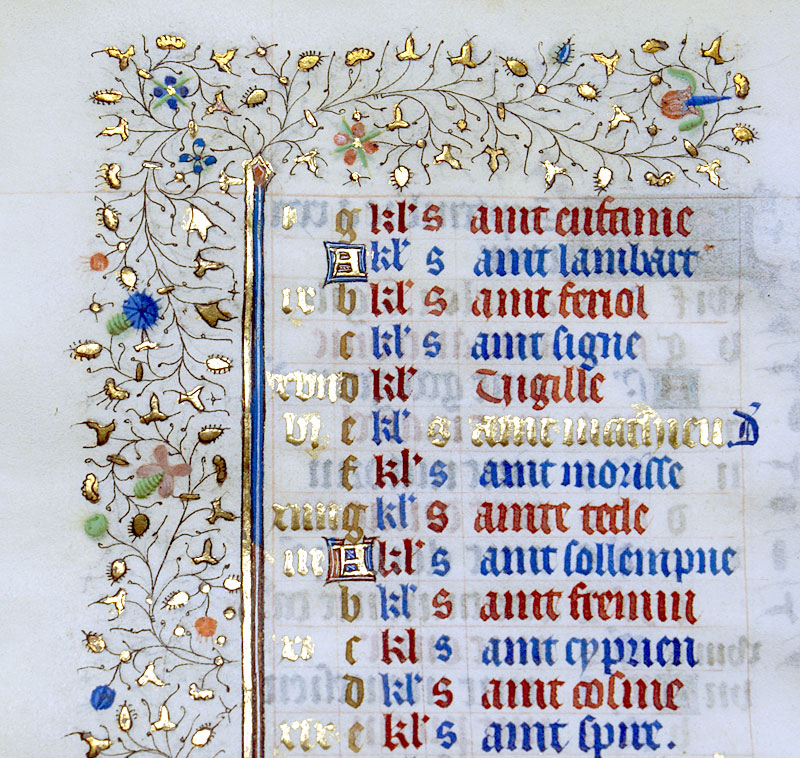 v g kl' s aint eustacie
A kl' s aint lambart
ix b kl' s aint feriol
c kl' s aint signe
xvii d kl' Vigille
vi e kl' s aint mathieu. D
f kl' s aint morisse
xiiii g kl' s ainte tecle
iii A kl' s aint sollempne
b kl' s aint fremin
xi c kl s aint cyprien
d kl' s aint cosme
xix e kl' s aint spire.